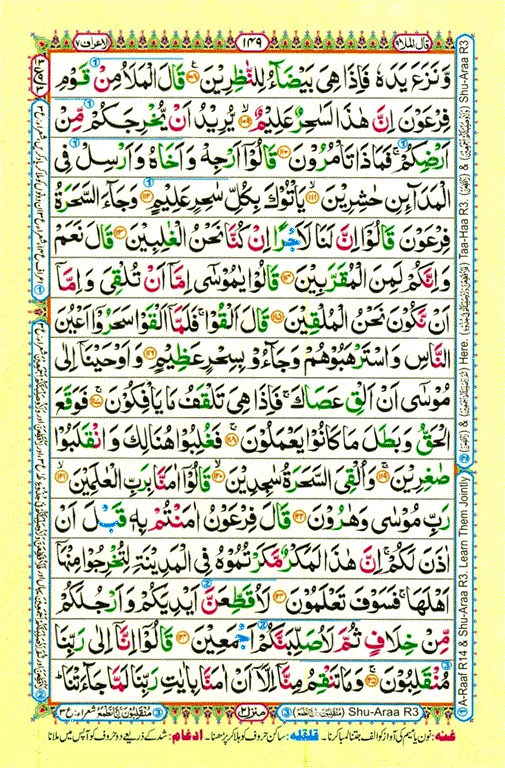 قال الملا ٩
١٤٩
الاعراف ٧
وَّنَزَعَ يَدَهٗ فَاِذَا هِيَ بَيْضَآءُ لِلنّٰظِرِيْنَ ۝١٠٨ قَالَ الْمَلَاُ مِنْ قَوْمِ
فِرْعَوْنَ اِنَّ هٰذَا لَسٰحِرٌ عَلِيْمٌ ۝١٠٩ يُّرِيْدُ اَنْ يُّخْرِجَكُمْ مِّنْ
اَرْضِكُمْ ۚ فَمَاذَا تَاْمُرُوْنَ ۝١١٠ قَالُوْٓا اَرْجِهْ وَاَخَاهُ وَاَرْسِلْ فِي
الْمَدَآئِنِ حٰشِرِيْنَ ۝١١١ يَاْتُوْكَ بِكُلِّ سٰحِرٍ عَلِيْمٍ ۝١١٢ وَجَآءَ السَّحَرَةُ
فِرْعَوْنَ قَالُوْٓا اِنَّ لَنَا لَاَجْرًا اِنْ كُنَّا نَحْنُ الْغٰلِبِيْنَ ۝١١٣ قَالَ نَعَمْ
وَاِنَّكُمْ لَمِنَ الْمُقَرَّبِيْنَ ۝١١٤ قَالُوْا يٰمُوْسٰٓى اِمَّآ اَنْ تُلْقِيَ وَاِمَّآ
اَنْ نَّكُوْنَ نَحْنُ الْمُلْقِيْنَ ۝١١٥ قَالَ اَلْقُوْا ۚ فَلَمَّآ اَلْقَوْا سَحَرُوْٓا اَعْيُنَ
النَّاسِ وَاسْتَرْهَبُوْهُمْ وَجَآءُوْ بِسِحْرٍ عَظِيْمٍ ۝١١٦ وَاَوْحَيْنَآ اِلٰى
مُوْسٰٓى اَنْ اَلْقِ عَصَاكَ ۚ فَاِذَا هِيَ تَلْقَفُ مَا يَاْفِكُوْنَ ۝١١٧ فَوَقَعَ
الْحَقُّ وَبَطَلَ مَا كَانُوْا يَعْمَلُوْنَ ۝١١٨ فَغُلِبُوْا هُنَالِكَ وَانْقَلَبُوْا
صٰغِرِيْنَ ۝١١٩ وَاُلْقِيَ السَّحَرَةُ سٰجِدِيْنَ ۝١٢٠ قَالُوْٓا اٰمَنَّا بِرَبِّ الْعٰلَمِيْنَ ۝١٢١
رَبِّ مُوْسٰى وَهٰرُوْنَ ۝١٢٢ قَالَ فِرْعَوْنُ اٰمَنْتُمْ بِهٖ قَبْلَ اَنْ
اٰذَنَ لَكُمْ ۚ اِنَّ هٰذَا لَمَكْرٌ مَّكَرْتُمُوْهُ فِي الْمَدِيْنَةِ لِتُخْرِجُوْا مِنْهَآ
اَهْلَهَا ۚ فَسَوْفَ تَعْلَمُوْنَ ۝١٢٣ لَاُقَطِّعَنَّ اَيْدِيَكُمْ وَاَرْجُلَكُمْ
مِّنْ خِلَافٍ ثُمَّ لَاُصَلِّبَنَّكُمْ اَجْمَعِيْنَ ۝١٢٤ قَالُوْٓا اِنَّآ اِلٰى رَبِّنَا
مُنْقَلِبُوْنَ ۝١٢٥ وَمَا تَنْقِمُ مِنَّآ اِلَّآ اَنْ اٰمَنَّا بِاٰيٰتِ رَبِّنَا لَمَّا جَآءَتْنَا ؕ
Shu-Araa R3
منزل ٢
غنه: نون یا میم کی آواز کو الف جتنا لمبا کرنا۔ قلقله: ساکن حروف کو ہلا کر پڑھنا۔ ادغام: شد کے ذریعے دو حروف کو آپس میں ملانا
A-Raaf R14 & Shu-Araa R3. Learn Them Jointly
Here.
& Taa-Haa R3.
& Shu-Araa R3